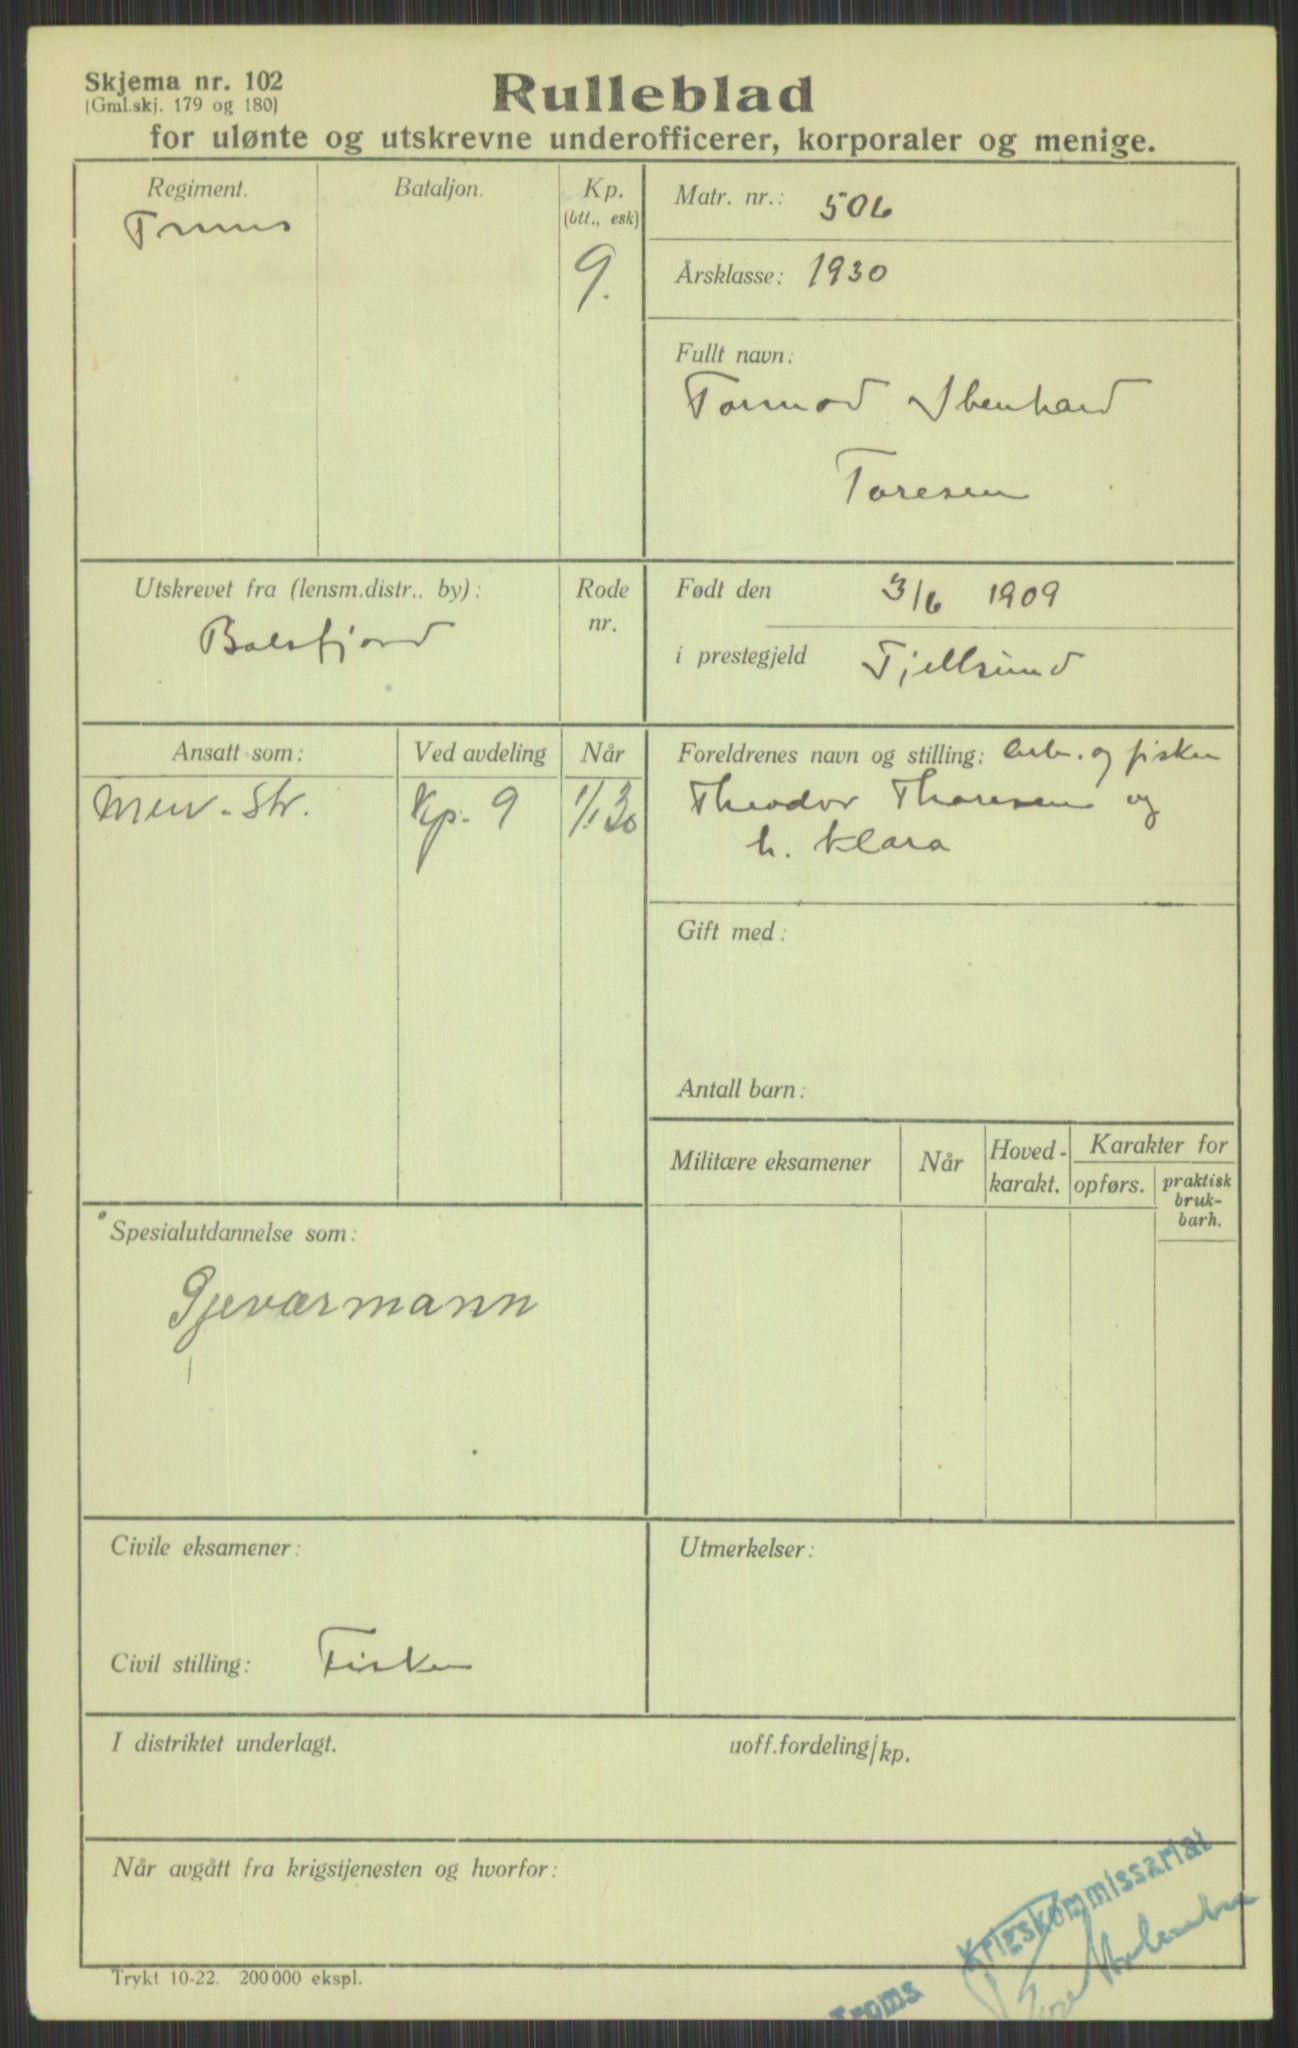 Skjema nr. 102
(Gml.skj. 179 og 180)
Rulleblad
for ulønte og utskrevne underofficerer, korporaler og menige.
Regiment.
Troms
Bataljon.
Kp.
(btt., esk)
9.
Matr. nr.: 506
Årsklasse: 1930
Fullt navn:
Tormod Ibenhard
Toresen
Utskrevet fra (lensm.distr., by):
Balsfjord
Rode
nr.
Født den 3/6 1909
i prestegjeld Tjellsund
Ansatt som:
Ved avdeling
Når
Men. Str.
Kp. 9
1/1 30
Foreldrenes navn og stilling: Arb. og fisker
Theodor Thoresen og
h. Klara
Gift med:
Antall barn:
Militære eksamener
Når
Hoved-
karakt.
Karakter for
opførs.
praktisk
bruk-
barh.
Spesialutdannelse som:
Gjeværmann
Civile eksamener:
Civil stilling: Fisker
Utmerkelser:
I distriktet underlagt.
uoff.fordeling/kp.
Når avgått fra krigstjenesten og hvorfor:
Troms Krigskommissariat
Trykt 10-22. 200 000 ekspl.